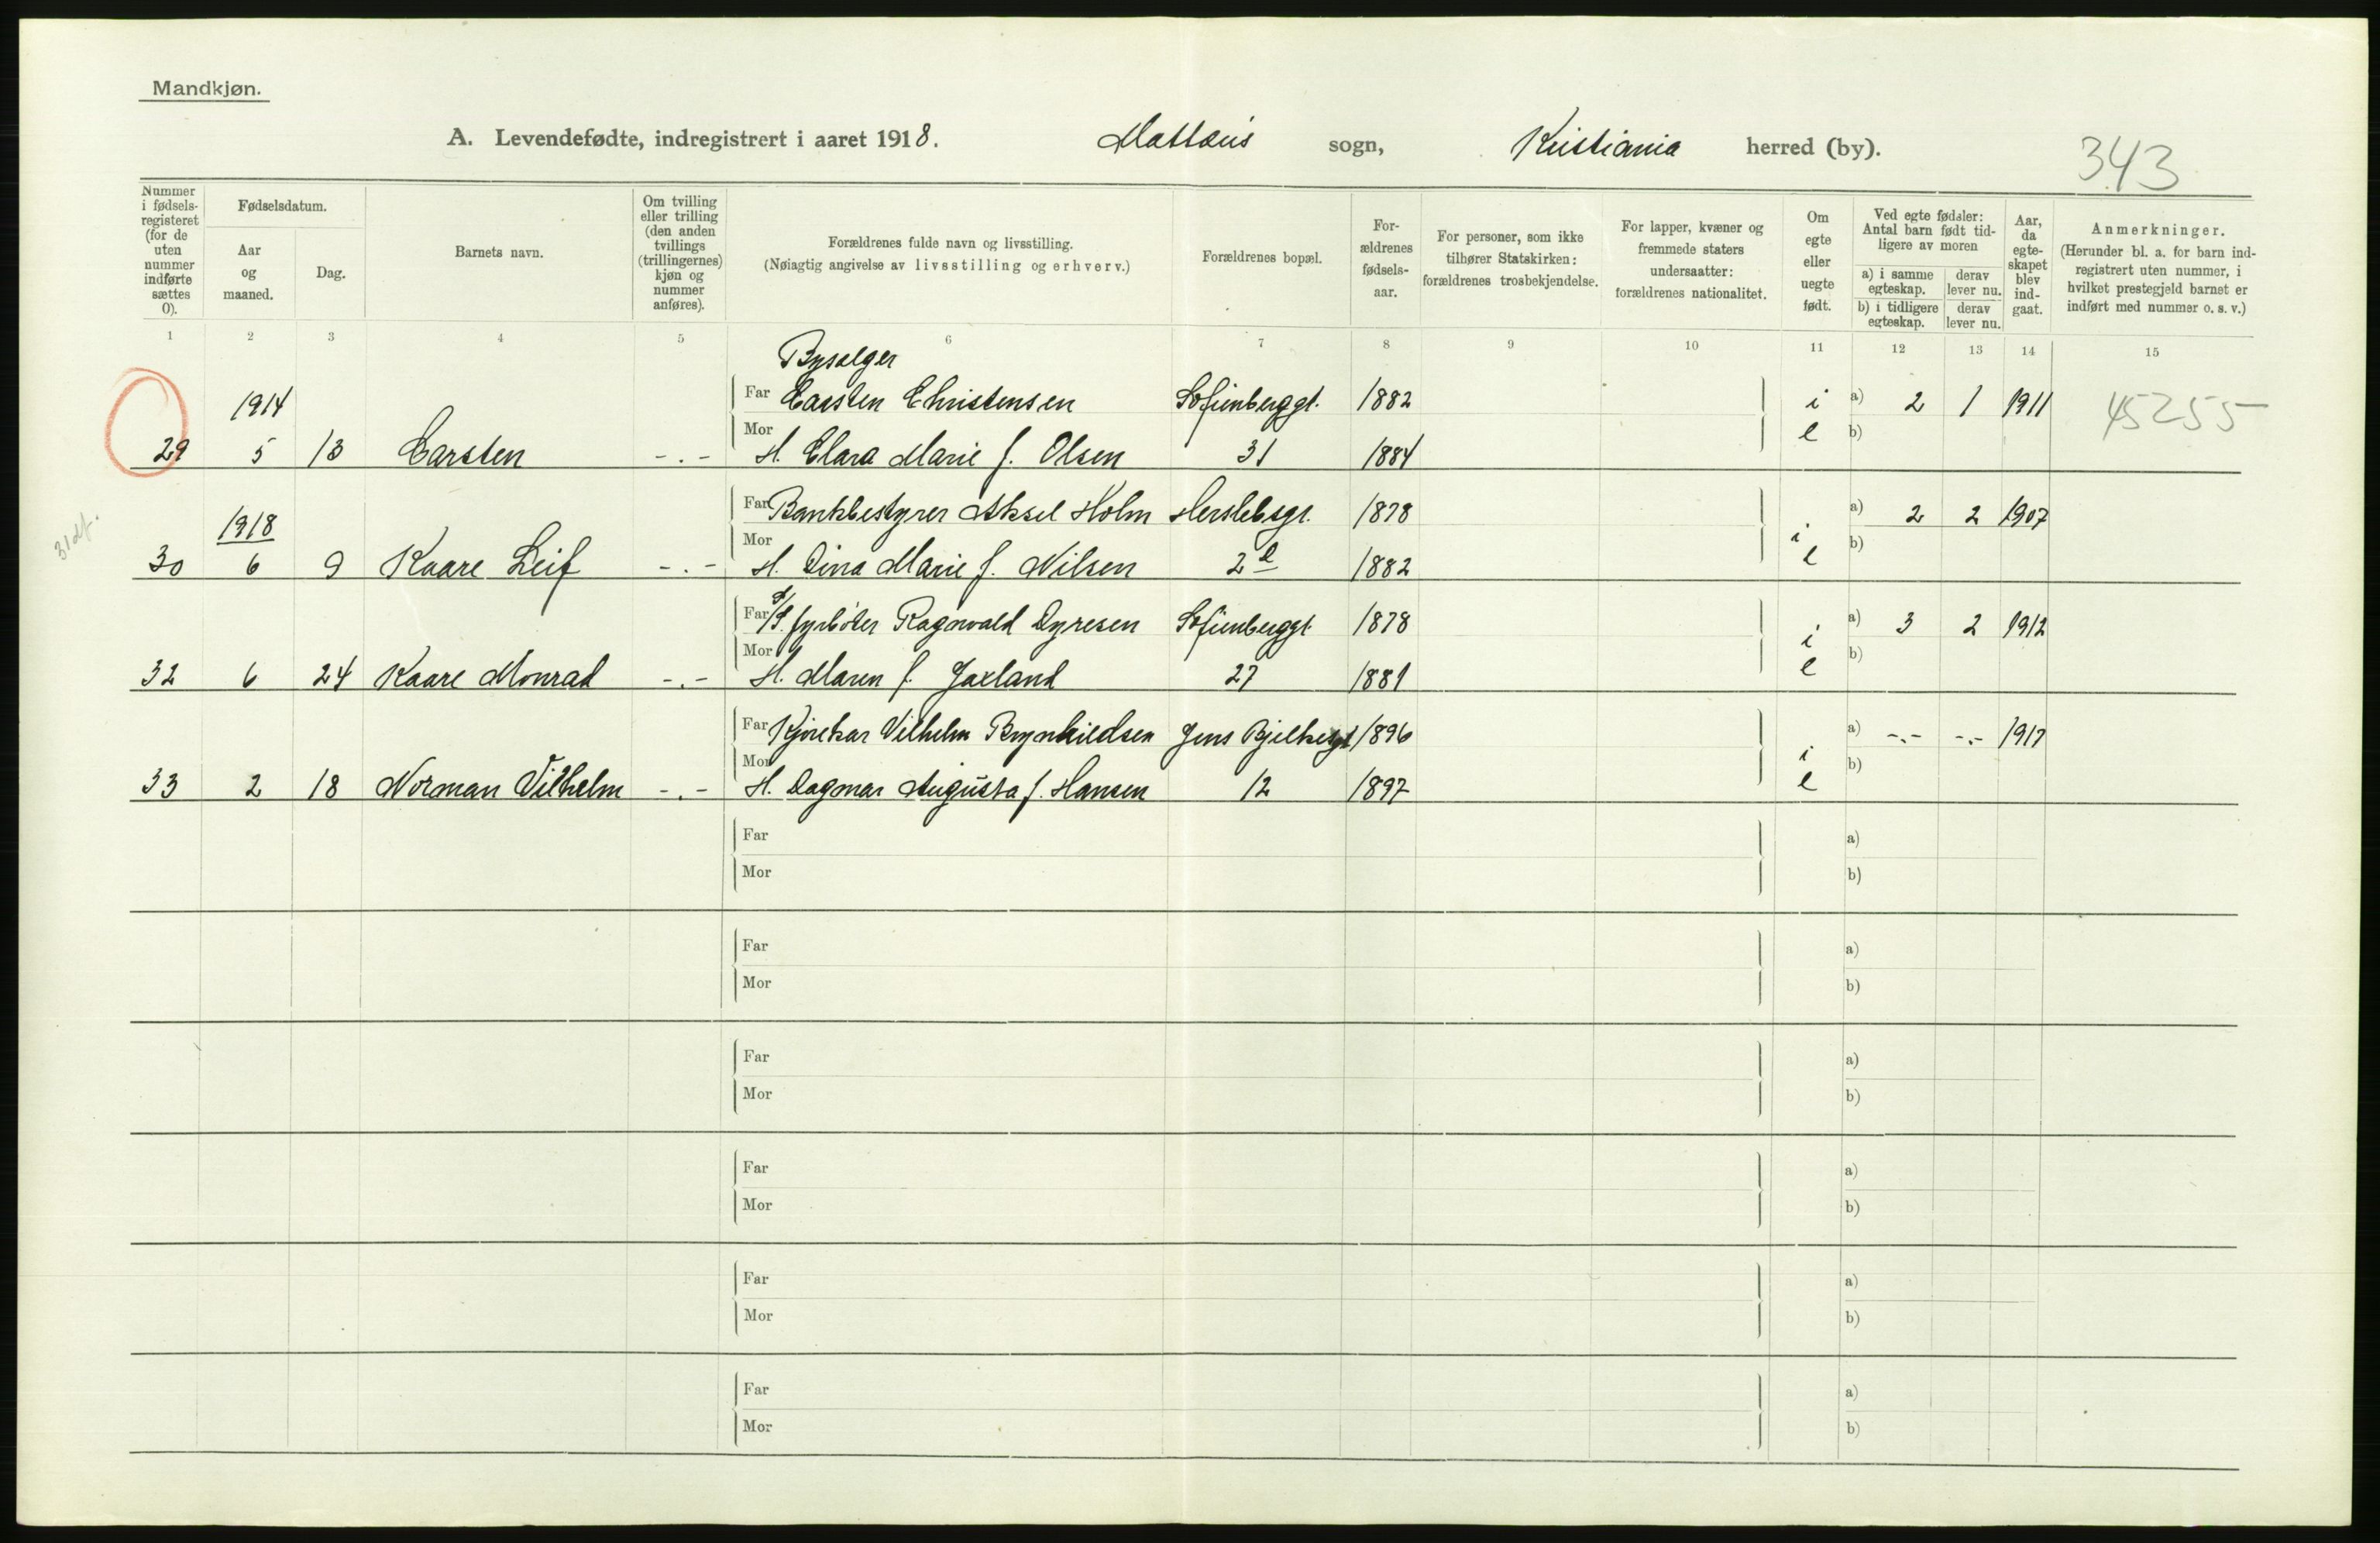 Mandkjøn.
A. Levendefødte, indregistrert i aaret 1918. Mattæus sogn, Kristiania herred (by).
343
Nummer i fødsels-registeret (for de uten nummer indførte sættes 0).
Fødselsdatum.
Aar og maaned.
Dag.
Barnets navn.
Om tvilling eller trilling (den anden tvillings (trillingernes) kjøn og nummer anføres).
Forældrenes fulde navn og livsstilling.
(Nøiagtig angivelse av livsstilling og erhverv.)
Forældrenes bopæl.
For-ældrenes fødsels-aar.
For personer, som ikke tilhører Statskirken: forældrenes trosbekjendelse.
For lapper, kvæner og fremmede staters undersaatter: forældrenes nationalitet.
Om egte eller uegte født.
Ved egte fødsler: Antal barn født tid-ligere av moren
a) i samme egteskap.
derav lever nu.
b) i tidligere egteskap.
derav lever nu.
Aar, da egte-skapet blev ind-gaat.
Anmerkninger.
(Herunder bl. a. for barn ind-registrert uten nummer, i hvilket prestegjeld barnet er indført med nummer o. s. v.)
1 2 3 4 5 6 7 8 9 10 11 12 13 14 15
Bysælger
1914 Far Carsten Christensen Sofienberggt. 1882 i a) 2 1 1911 45255
29 5 13 Carsten -.- Mor H. Clara Marie f. Olsen 31 1884 e b)
1918 Far Bankbestyrer Aksel Holm Herslebsgt. 1878 i a) 2 2 1907
31 df.
30 6 9 Kaare Leif -.- Mor H. Dina Marie f. Nilsen 2 1882 e b)
Far S/S. fyrbøter Ragnvald Dyresen Sofienberggt. 1878 i a) 3 2 1912
32 6 24 Kaare Monrad -.- Mor H. Maren f. Jaxland 27 1881 e b)
Far Kjørekar Vilhelm Brynhildsen Jens Bjelkesgt 1896 i a) -.- -.- 1917
33 2 18 Norman Vilhelm -.- Mor H. Dagmar Augusta f. Hansen 12 1897 e b)
Far a)
Mor b)
Far a)
Mor b)
Far a)
Mor b)
Far a)
Mor b)
Far a)
Mor b)
Far a)
Mor b)